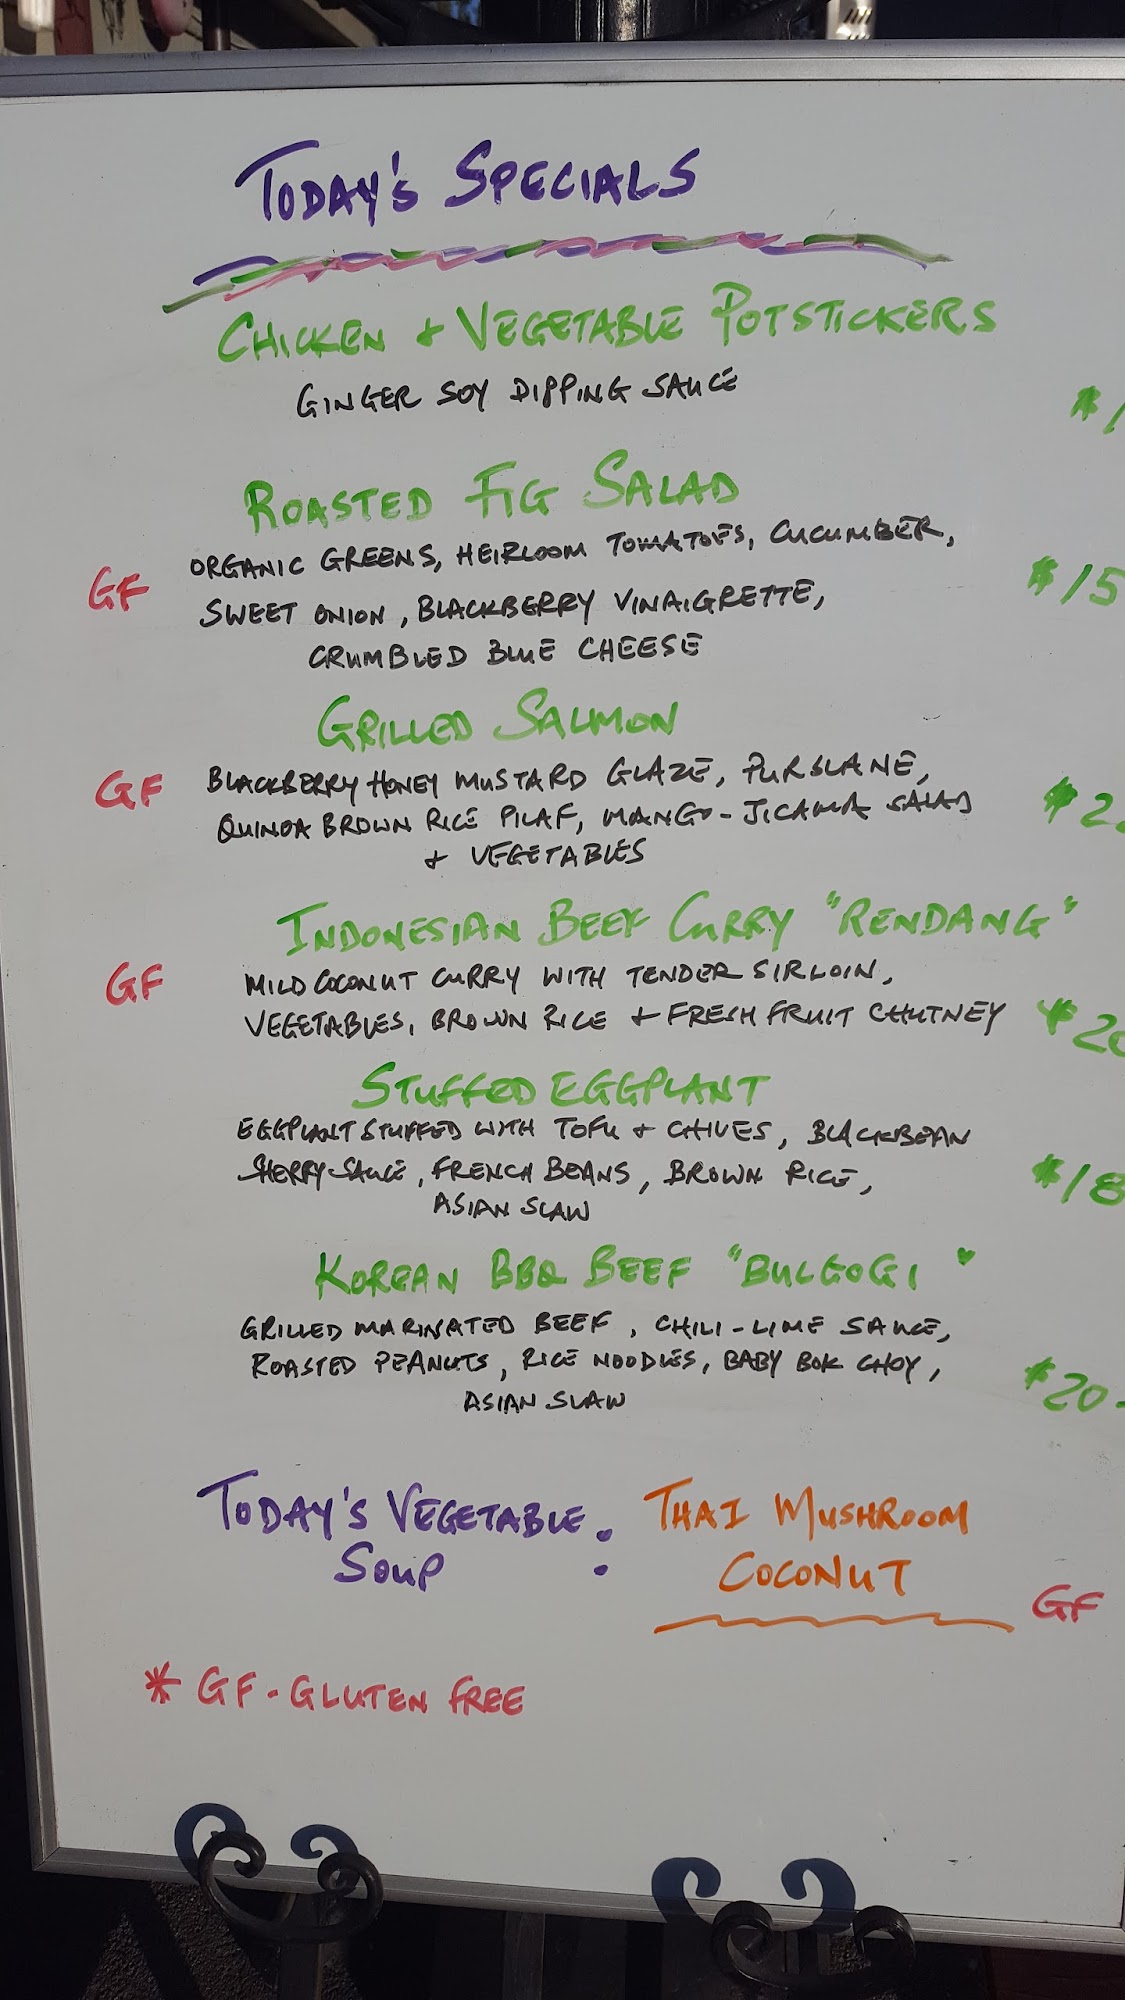 TODAY'S SPECIALS
CHICKEN + VEGETABLE POTSTICKERS
GINGER SOY DIPPING SAUCE
ROASTED FIG SALAD
ORGANIC GREENS, HEIRLOOM TOMATOES, CUCUMBER,
GF SWEET ONION, BLACKBERRY VINAIGRETTE, $15
CRUMBLED BLUE CHEESE
GRILLED SALMON
GF BLACKBERRY HONEY MUSTARD GLAZE, PURSLANE,
QUINOA BROWN RICE PILAF, MANGO-JICAMA SALAD
+ VEGETABLES
INDONESIAN BEEF CURRY "RENDANG"
GF MILD COCONUT CURRY WITH TENDER SIRLOIN,
VEGETABLES, BROWN RICE + FRESH FRUIT CHUTNEY $20
STUFFED EGGPLANT
EGGPLANT STUFFED WITH TOFU + CHIVES, BLACKBEAN
SHERRY SAUCE, FRENCH BEANS, BROWN RICE, $18
ASIAN SLAW
KOREAN BBQ BEEF "BULGOGI"
GRILLED MARINATED BEEF, CHILI-LIME SAUCE,
ROASTED PEANUTS, RICE NOODLES, BABY BOK CHOY, $20-
ASIAN SLAW
TODAY'S VEGETABLE SOUP : THAI MUSHROOM
COCONUT GF
* GF - GLUTEN FREE